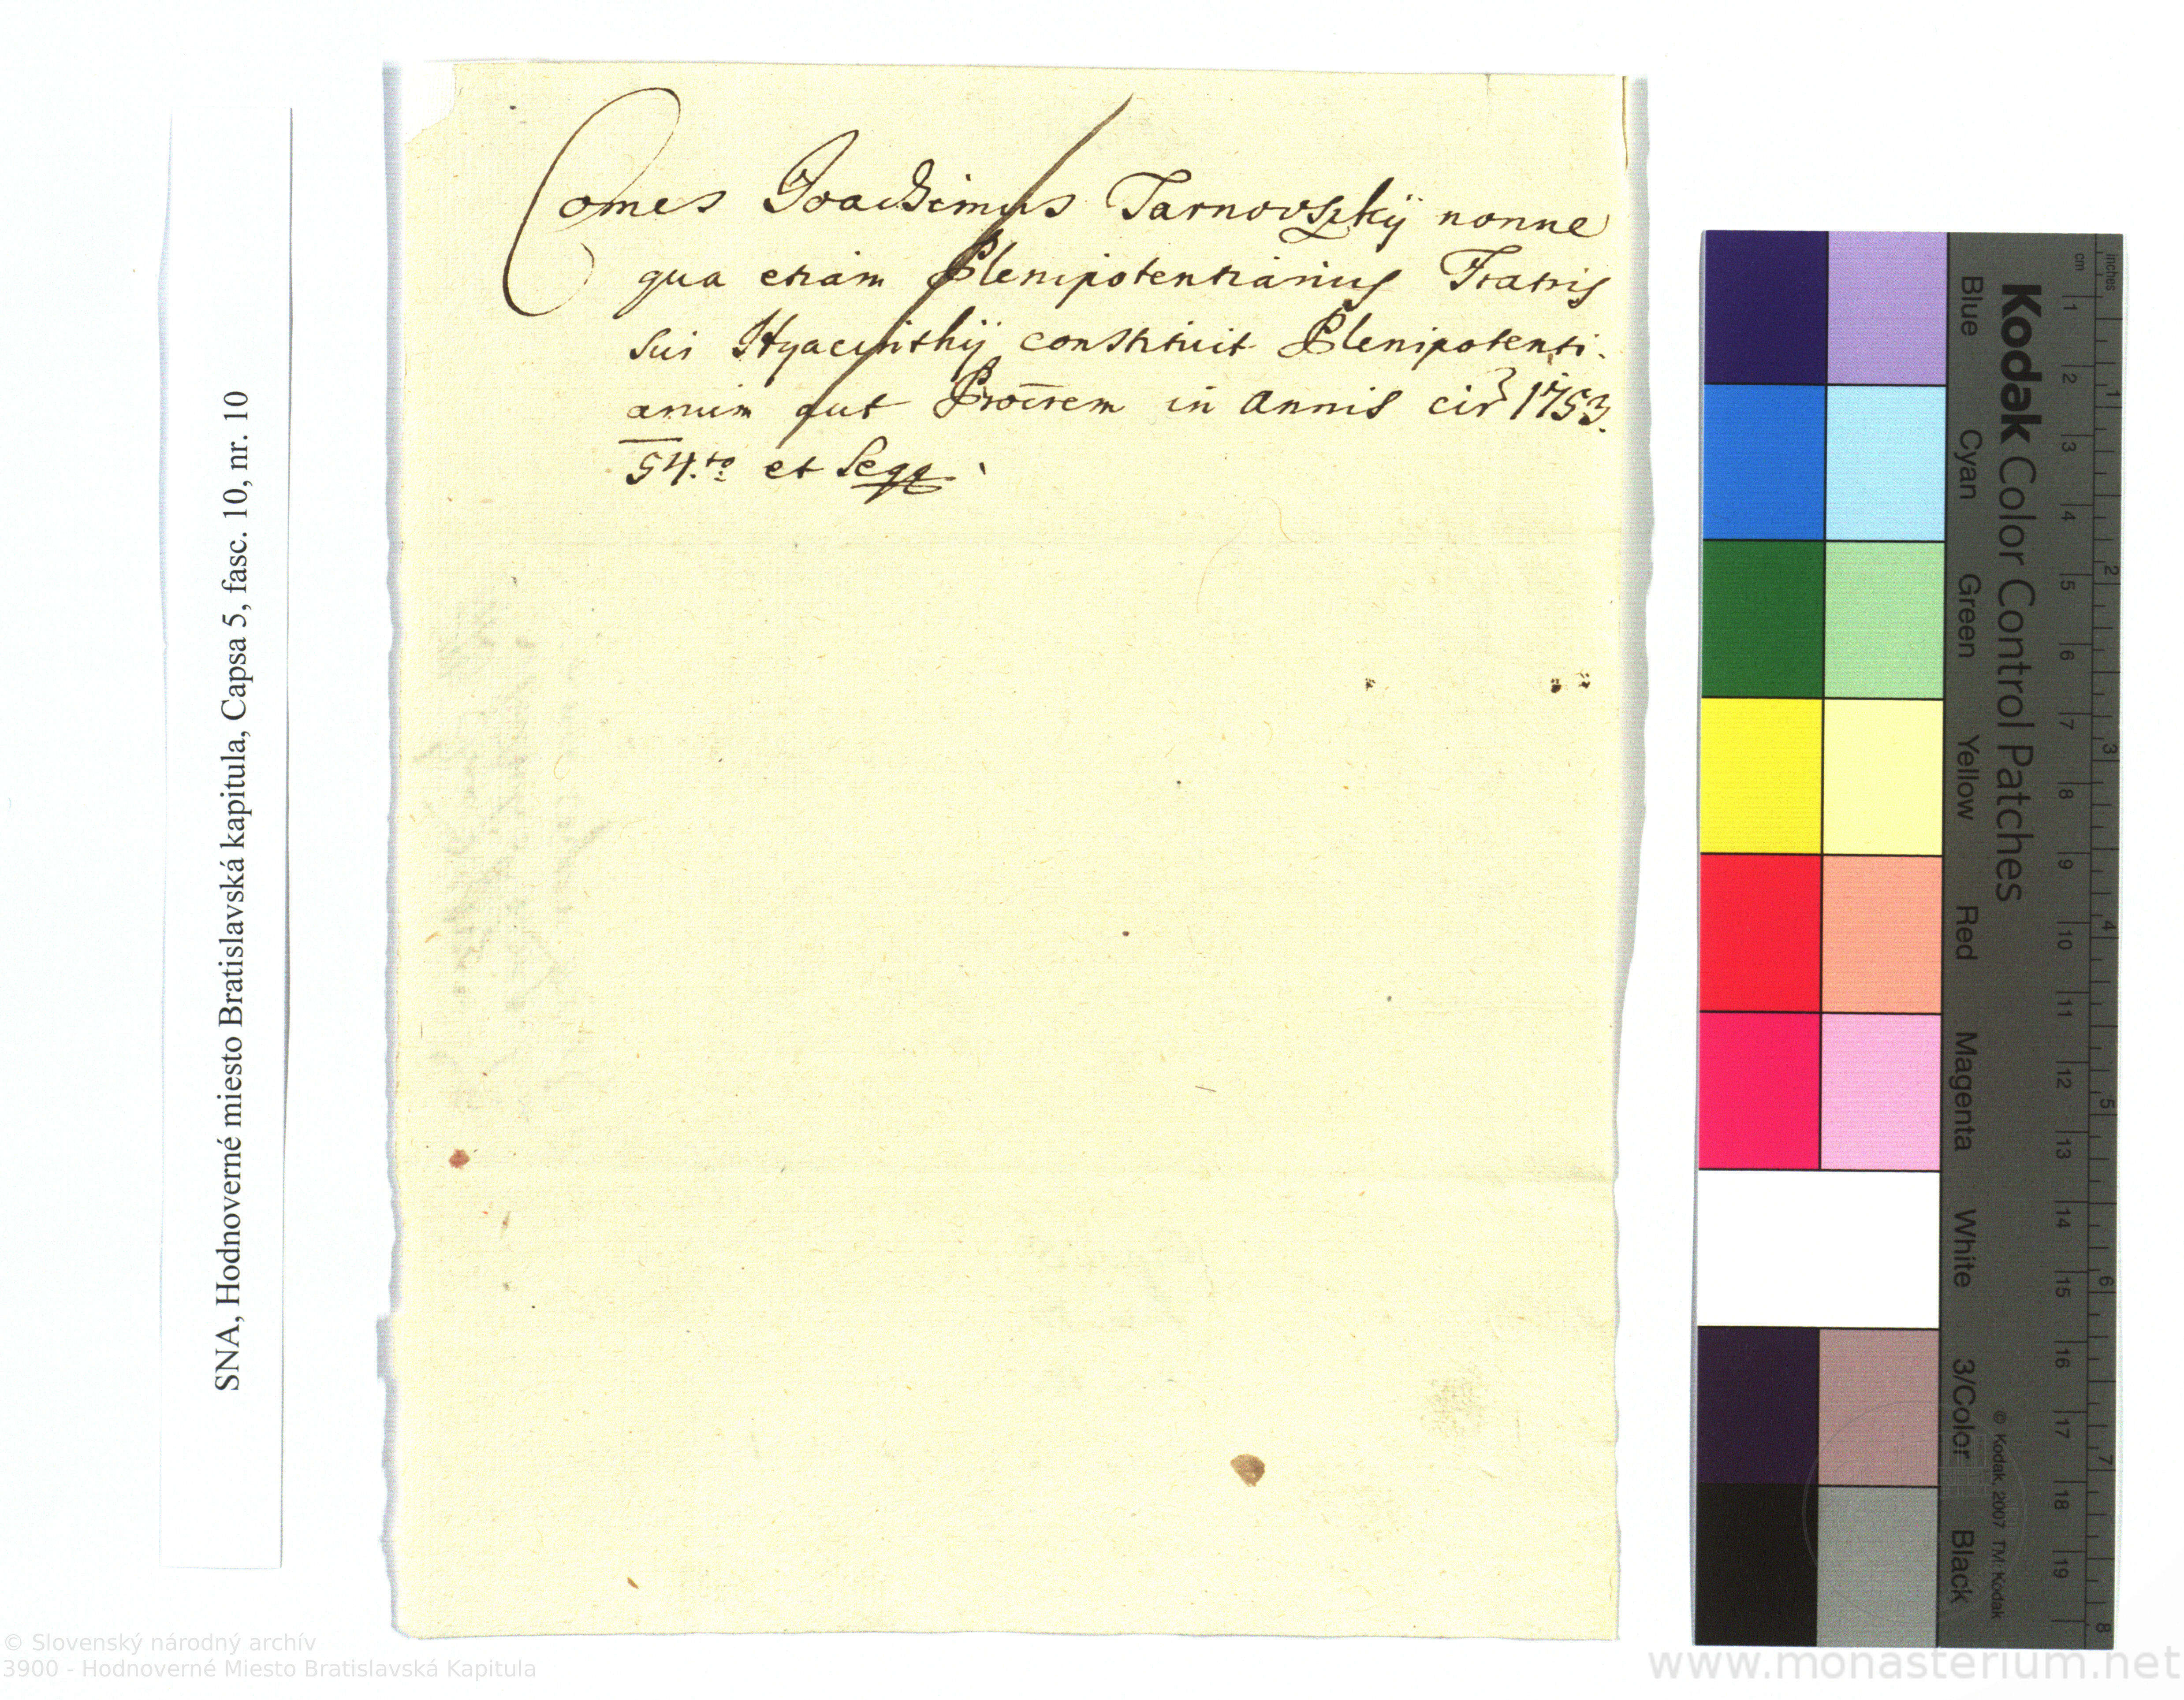 SNA, Hodnoverné miesto Bratislavská kapitula, Capsa 5, fasc. 10, nr. 10
Comes Joachimus Tarnovszkÿ nonne
qua etiam Plenipotentiarius Fratris
sui Hyacinthÿ constituit Plenipotenti.
arium aut Procrem in Annis cir 1753.
54.to et Seqq
Kodak Color Control Patches
Blue Cyan Green Yellow Red Magenta White 3/Color Black
© Kodak, 2007 TM: Kodak
cm 1 2 3 4 5 6 7 8 9 10 11 12 13 14 15 16 17 18 19
inches 1 2 3 4 5 6 7 8
© Slovenský národný archív
3900 - Hodnoverné Miesto Bratislavská Kapitula
www.monasterium.net